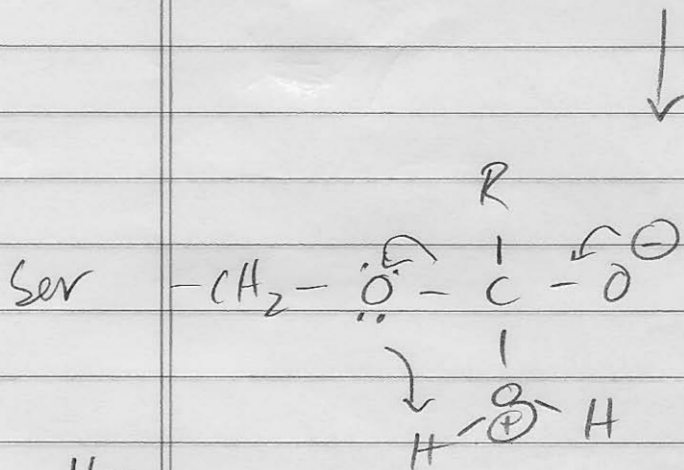 R
Ser -CH₂-O-C-O⊖
H-O⊕-H
H